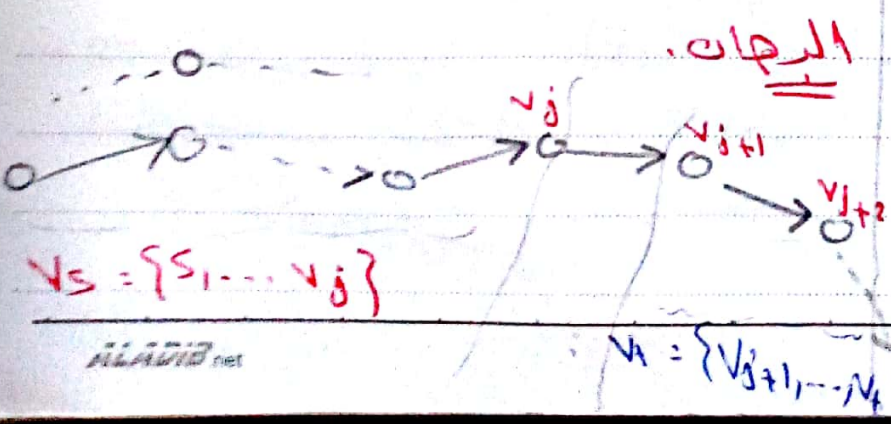 البرهان.
v_j
v_{j+1}
v_{j+2}
V_s = {s, .... v_j}
ALADIB.net
V_t = {V_{j+1}, ..., V_t